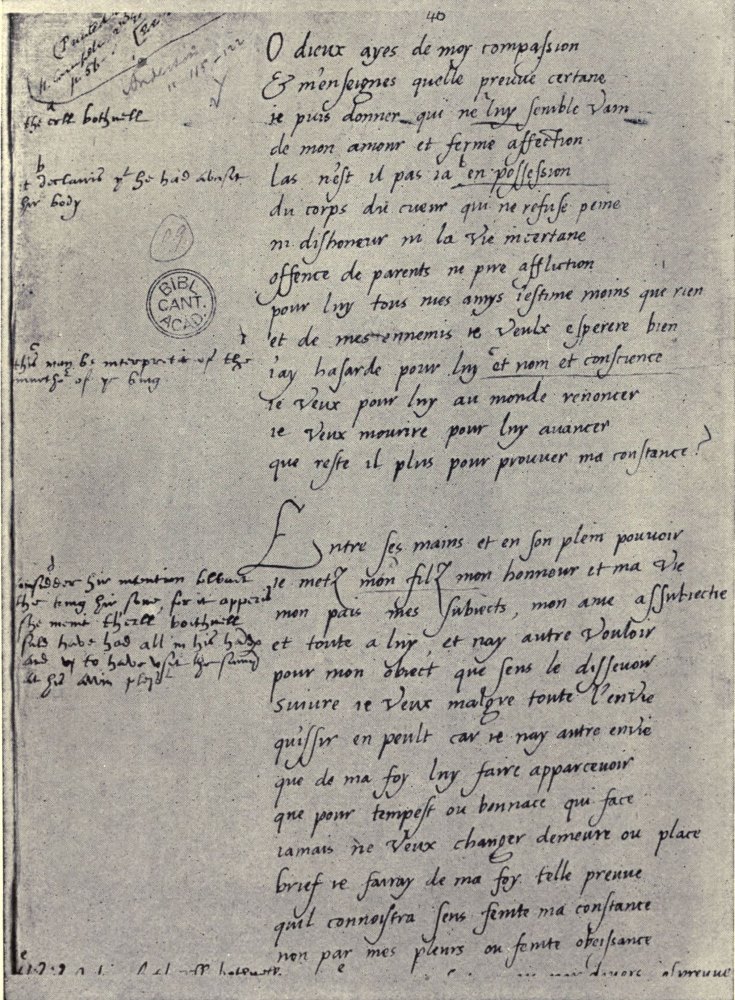 46
Printed
p. 56.
Anderson
ii 115–122
O dieux ayes de moy compassion
& m'enseignes quelle preuve certane
ie puis donner qui ne luy semble vain
de mon amour et ferme affection
Las n'est il pas ia en possession
du corps du cueur qui ne refuse peine
ni dishoneur ni la vie incertane
offence de parents ne pire affliction
pour luy tous mes amys i'estime moins que rien
et de mes ennemis ie veulx esperere bien
i'ay hasarde pour luy et nom et conscience
ie veux pour luy au monde renoncer
ie veux mourire pour luy auancer
que reste il plus pour prouver ma constance?
Entre ses mains et en son plein pouvoir
ie metz mon filz mon honnour et ma vie
mon pais mes subiects, mon ame assubiectie
et toute a luy, et nay autre vouloir
pour mon obiect que sens le dissevoir
suivre ie veux malgre toute l'envie
quissir en peult car ie nay autre envie
que de ma foy luy faire apparcevoir
que pour tempest ou bonnace qui face
iamais ne veux changer demeure ou place
brief ie fairay de ma foy telle preuve
quil connoistra sens feinte ma constance
non par mes pleurs ou feinte obeissance
a
the erll bothuell
b
it declairis yt he had abusit
hir body
69
BIBL.
CANT.
ACAD.
c
this may be interpretit of the
of ye king
d
considder hir intention
the king hir sone, for it apperis
she ment therll boithuell
suld have had all in his hands
and to have usit the samin
at his awin